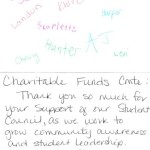 London
Harper
Scarlett
Hunter AJ
Charly
Lexi
Charitable Funds Cmte:
Thank you so much for
your Support of our Student
Council, as we work to
grow community awareness
and student leadership.